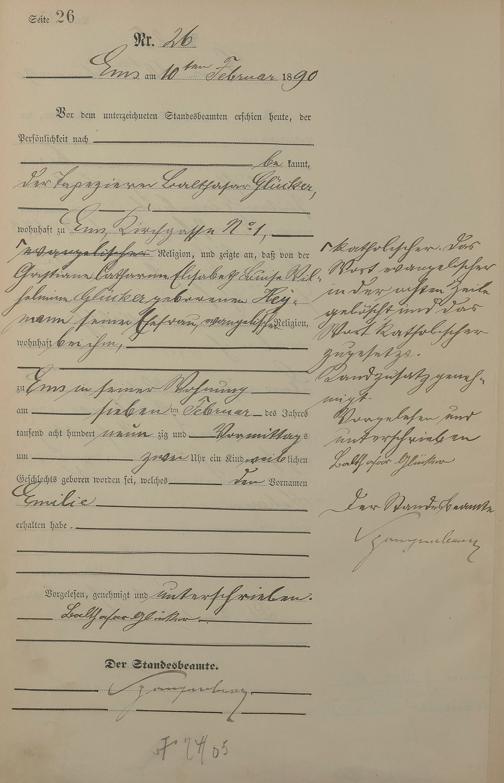 Seite 26
Nr. 26
Ems am 10ten Februar 1890
Vor dem unterzeichneten Standesbeamten erschien heute, der
Persönlichkeit nach
be kannt,
der Tapezierer Balthasar Glücker,
wohnhaft zu Ems, Kirchgasse No 1,
evangelischer Religion, und zeigte an, daß von der
Christiane Catharine Elisabeth Luise Wil-
helmine Glücker geborenen Hey-
mann, seiner Ehefrau, evangelischer Religion,
wohnhaft bei ihm,
zu Ems in seiner Wohnung
am sieben ten Februar des Jahres
tausend acht hundert neun zig und Vormittags
um zwei Uhr ein Kind weiblichen
Geschlechts geboren worden sei, welches den Vornamen
Emilie
erhalten habe.
Vorgelesen, genehmigt und unterschrieben.
Balthasar Glücker
Der Standesbeamte.
Spangenberg
katholischer. Das
Wort evangelischer
in der achten Zeile
gelöscht und das
Wort katholischer
zugesetzt.
Randzusatz geneh-
migt.
Vorgelesen und
unterschrieben
Balthasar Glücker
Der Standesbeamte
Spangenberg